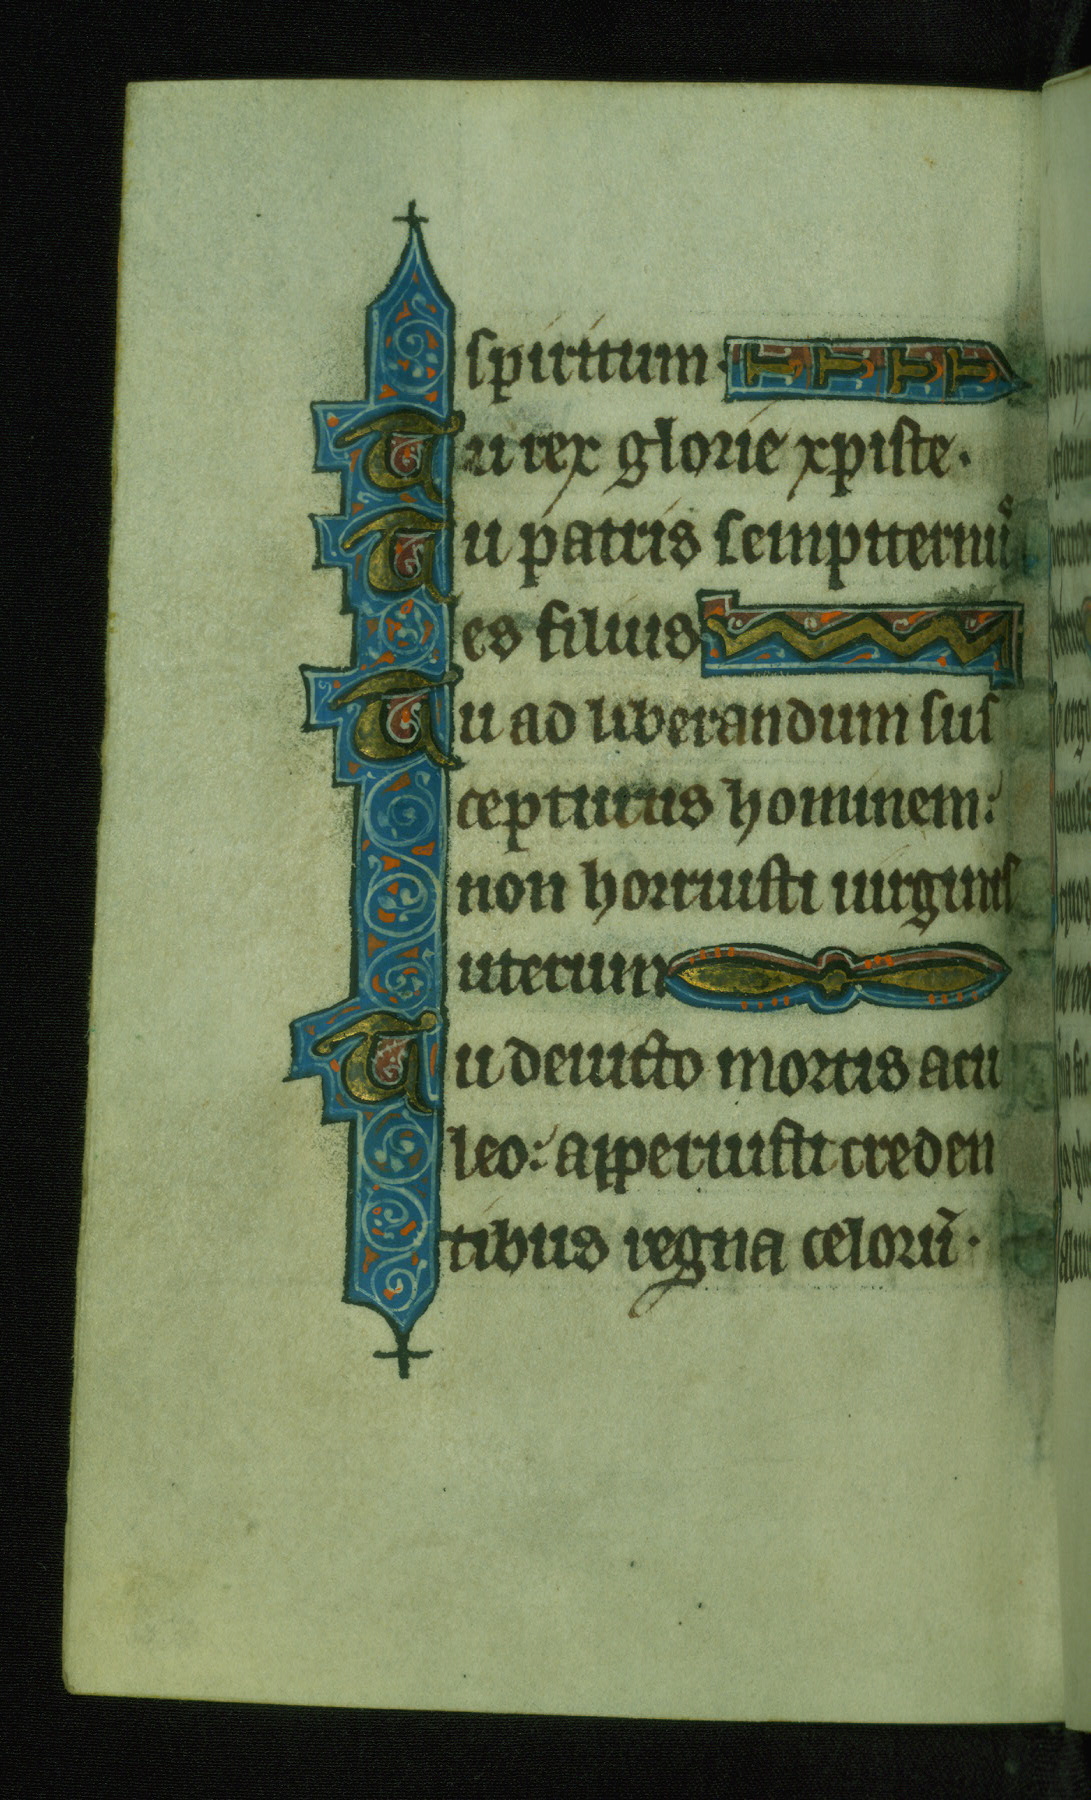 spiritum.
Tu rex glorie xpiste.
Tu patris sempiternuˢ
es filius
Tu ad liberandum sus
cepturus hominem:
non horruisti uirginis
uterum
Tu deuicto mortis acu
leo: apperuisti creden
tibus regna celorū.